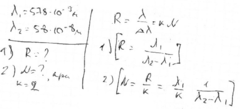 λ₁ = 578·10⁻⁹м
λ₂ = 58·10⁻⁸м
1) R = ?
2) N = ?
k = 2
R = λ/Δλ = kN
1) [R = λ₁/(λ₂-λ₁)]
2) [N = R/k = λ₁/k 1/(λ₂-λ₁)]